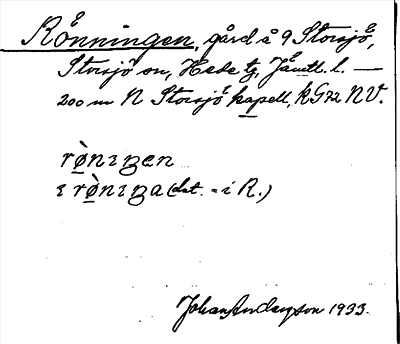 Rönningen, gård å 9 Storsjö,
Storsjö sn, Hede tg, Jämtl. l. —
200 m N Storsjö kapell, kG72 NV.
rò̤nıŋen
ı rò̤nıŋa (dat. = i R.)
Johan Anderson 1933.